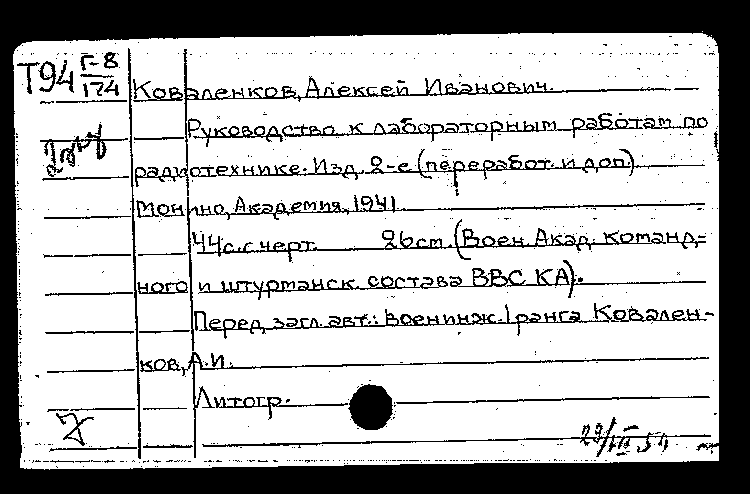 Т94 Г-8
174
Коваленков, Алексей Иванович.
Руководство к лабораторным работам по
радиотехнике. Изд. 2-е (переработ. и доп.)
Монино, Академия, 1941.
44с. с черт. 26 см. (Воен. Акад. команд-
ного и штурманск. состава ВВС КА).
Перед загл. авт.: Военинж. I ранга Ковален-
ков, А.И.
Литогр.
29/III 54